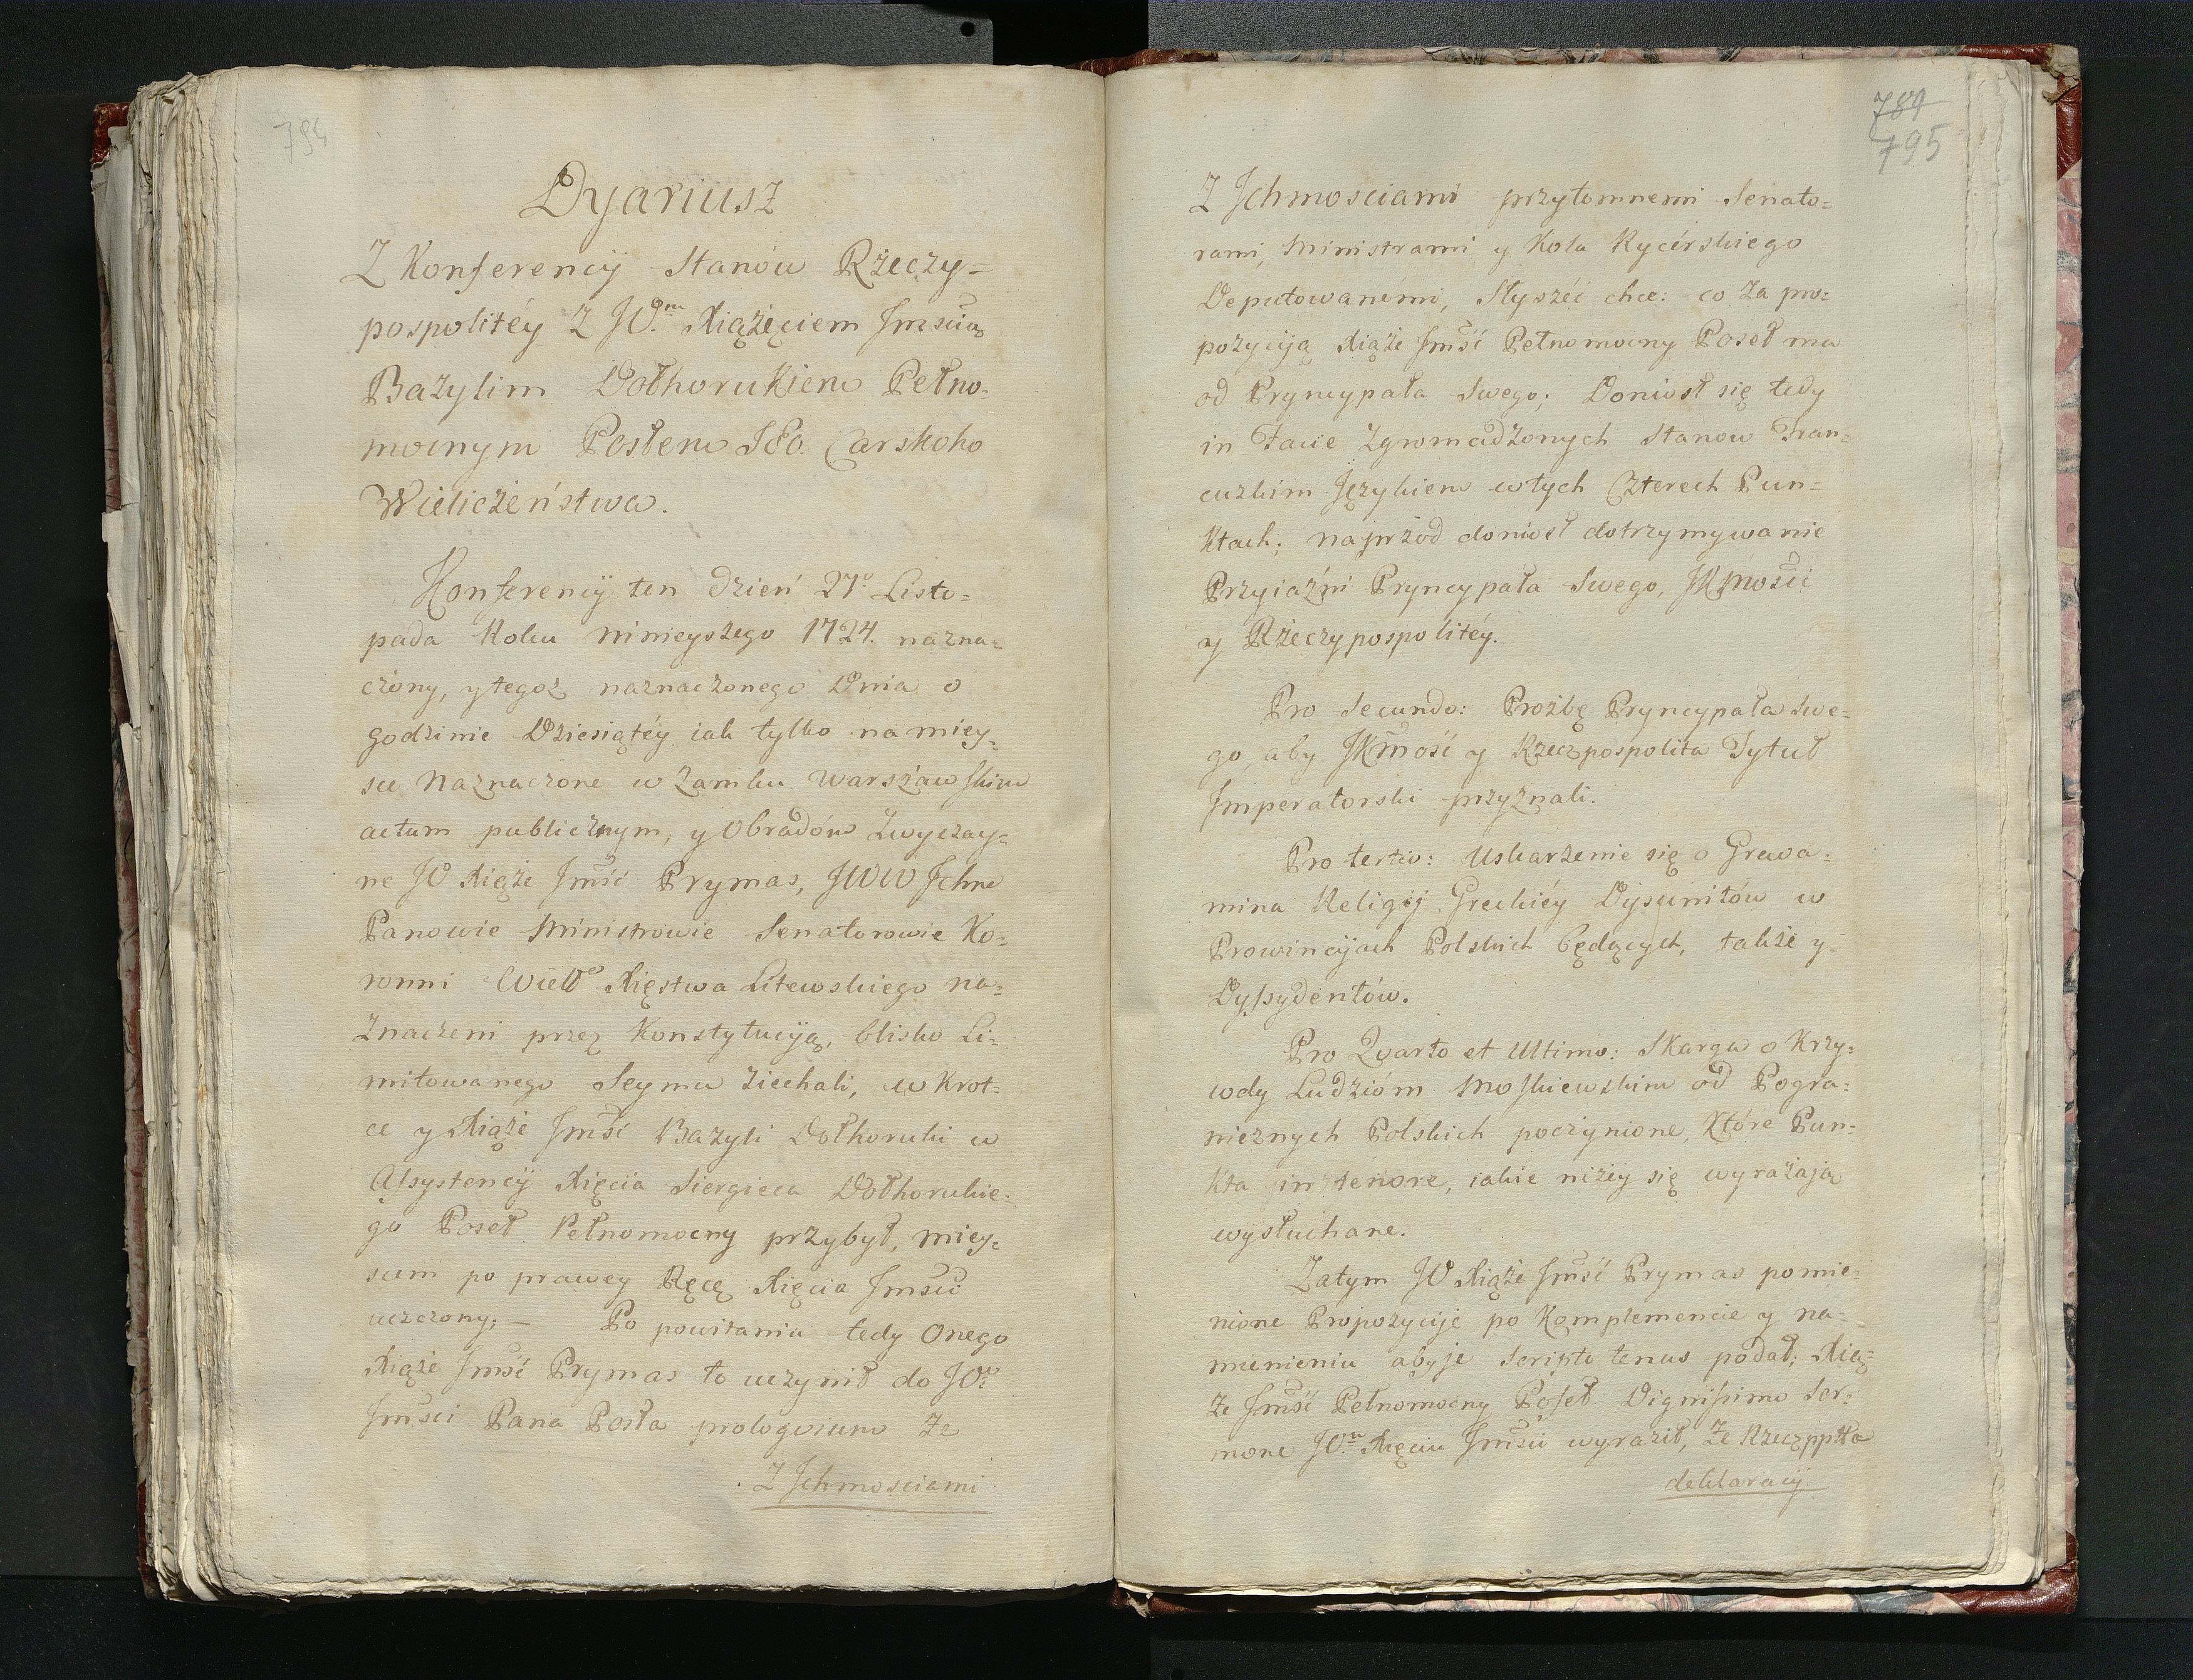 794
Dyariusz
Z Konferencij Stanów Rżeczy=
pospolitéy Z JW.m Xiążęciem Jmścią
Bazylim Dołhorukiem Pełno=
mocnym Posłem JEo. Carskoho
Wieliczeństwa.
Konferencij ten Dzień 27o. Listo=
pada Roku ninieyszego 1724. nazna=
czony, y tegoż naznaczonego Dnia o
godzinie Dziesiątéy iak tylko na miey=
sce Naznaczone w Zamku Warszawskim
actum publicznym, y Obradóm Zwyczay=
ne JW Xiąże Jmść Prymas, JWW Jchm
Panowie Ministrowie Senatorowie Ko=
ronni Wielo Xięstwa Litewskiego na=
Znaczeni przez Konstytucyją, blisko Li=
mitowanego Seymu ziechali, w krot=
ce y Xiąże Jmść Bazyli Dołhoruki w
Assystencij Xięcia Siergieia Dołhorukie=
go Poseł Pełnomocny przybył, miey=
scem po prawey Ręcę Xięcia Jmści
uczczony; — Po powitaniu tedy Onego
Xiąże Jmść Prymas to uczynił do JWo
Jmści Pana Posła prologorium że
Z Jchmosciami
789
795
Z Jchmosciami przytomnemi Senato=
rami, Ministrami y Koła Rycérskiego
Deputowanémi, Słyszéć chce: co za pro=
pozycyją Xiąże Jmść Pełnomocny Poseł ma
od Pryncypała Swego; Doniosł się tedy
in Facie Zgromadżonych Stanow Fran=
cuzkim Językiem w tych Czterech Pun=
ktach; najprżod doniosł dotrzymywanie
Przyiaźni Pryncypała Swego, JKMości
y Rżeczypospolitéy.
Pro Secundo: Prożbę Pryncypała Swe=
go, aby JKMość y Rzeczpospolita Tytuł
Imperatorski przyznali.
Pro tertio: Uskarżenie się o Grava=
mina Religij Greckiéy Dysunitów w
Prowincyjach Polskich będących, także y
Dyssydentów.
Pro Qvarto et Ultimo: Skarga o Krzy=
wdy Ludzióm Moskiewskim od Pogra=
nicznych Polskich poczynione, Które Pun=
kta in tenore, iakie niżéy się wyrażają
wysłuchane.
Zatym JW Xiąże Jmść Prymas pomie=
nione Propozycije po Komplemencie y na=
mienieniu aby je scripto tenus podał; Xią=
że Jmść Pełnomocny Poseł Dignissimo Ser=
mone JW.m Xięciu Jmści wyraził, Że Rzeczpptta
deklaracij.